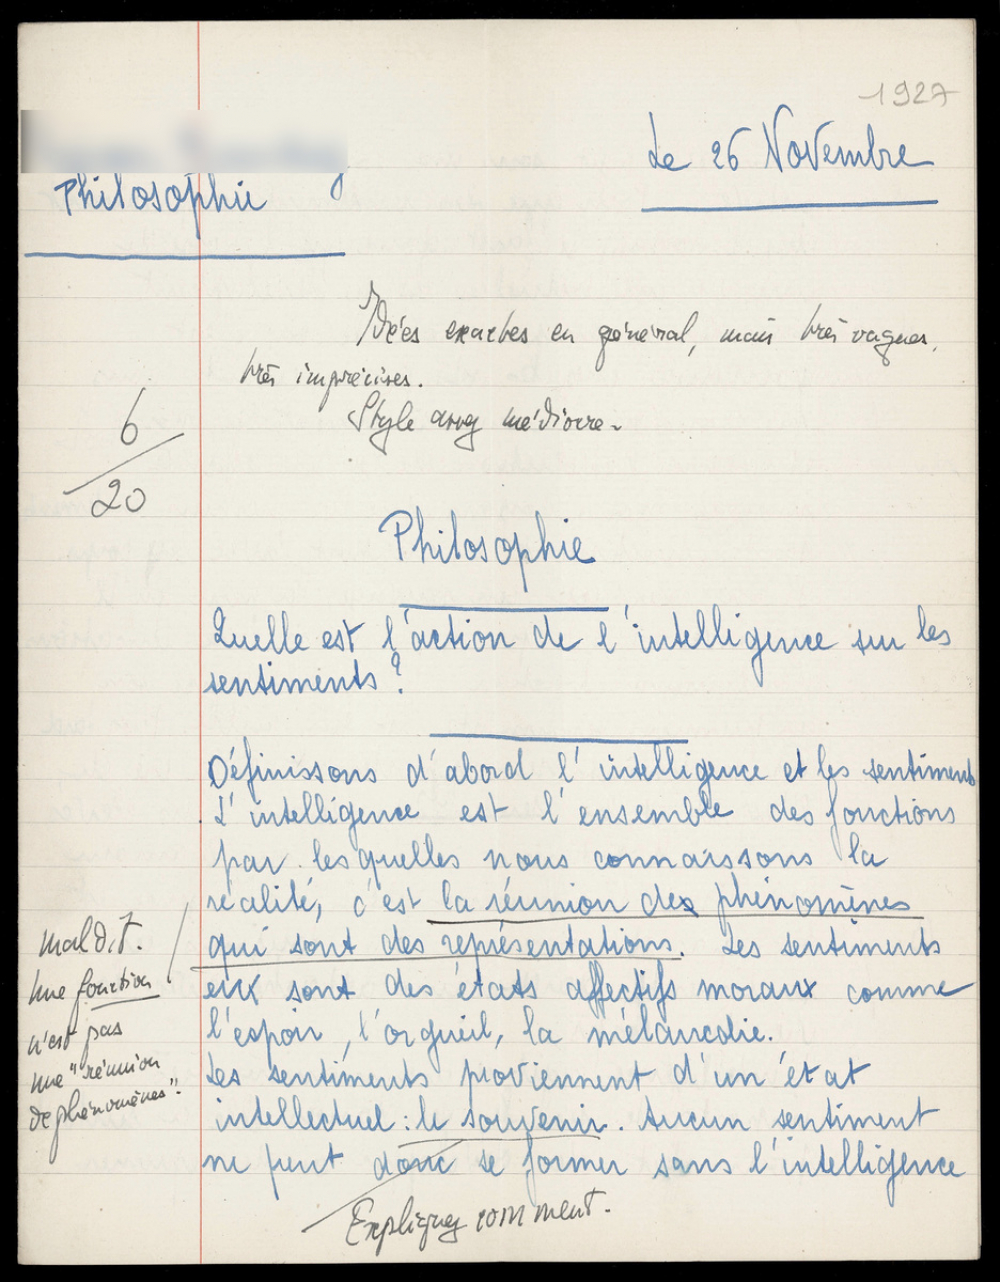 1927
Le 26 Novembre
Philosophie
Idées exactes en général, mais très vagues,
très imprécises.
Style assez médiocre.
6
20
Philosophie
Quelle est l'action de l'intelligence sur les
sentiments ?
Définissons d'abord l'intelligence et les sentiments
L'intelligence est l'ensemble des fonctions
par lesquelles nous connaissons la
réalité, c'est la réunion des phénomènes
qui sont des représentations. Les sentiments
eux sont des états affectifs moraux comme
l'espoir, l'orgueil, la mélancolie.
Les sentiments proviennent d'un état
intellectuel : le souvenir. Aucun sentiment
ne peut donc se former sans l'intelligence
mal dit.
Une fonction
n'est pas
une "réunion
de phénomènes".
Expliquez comment.